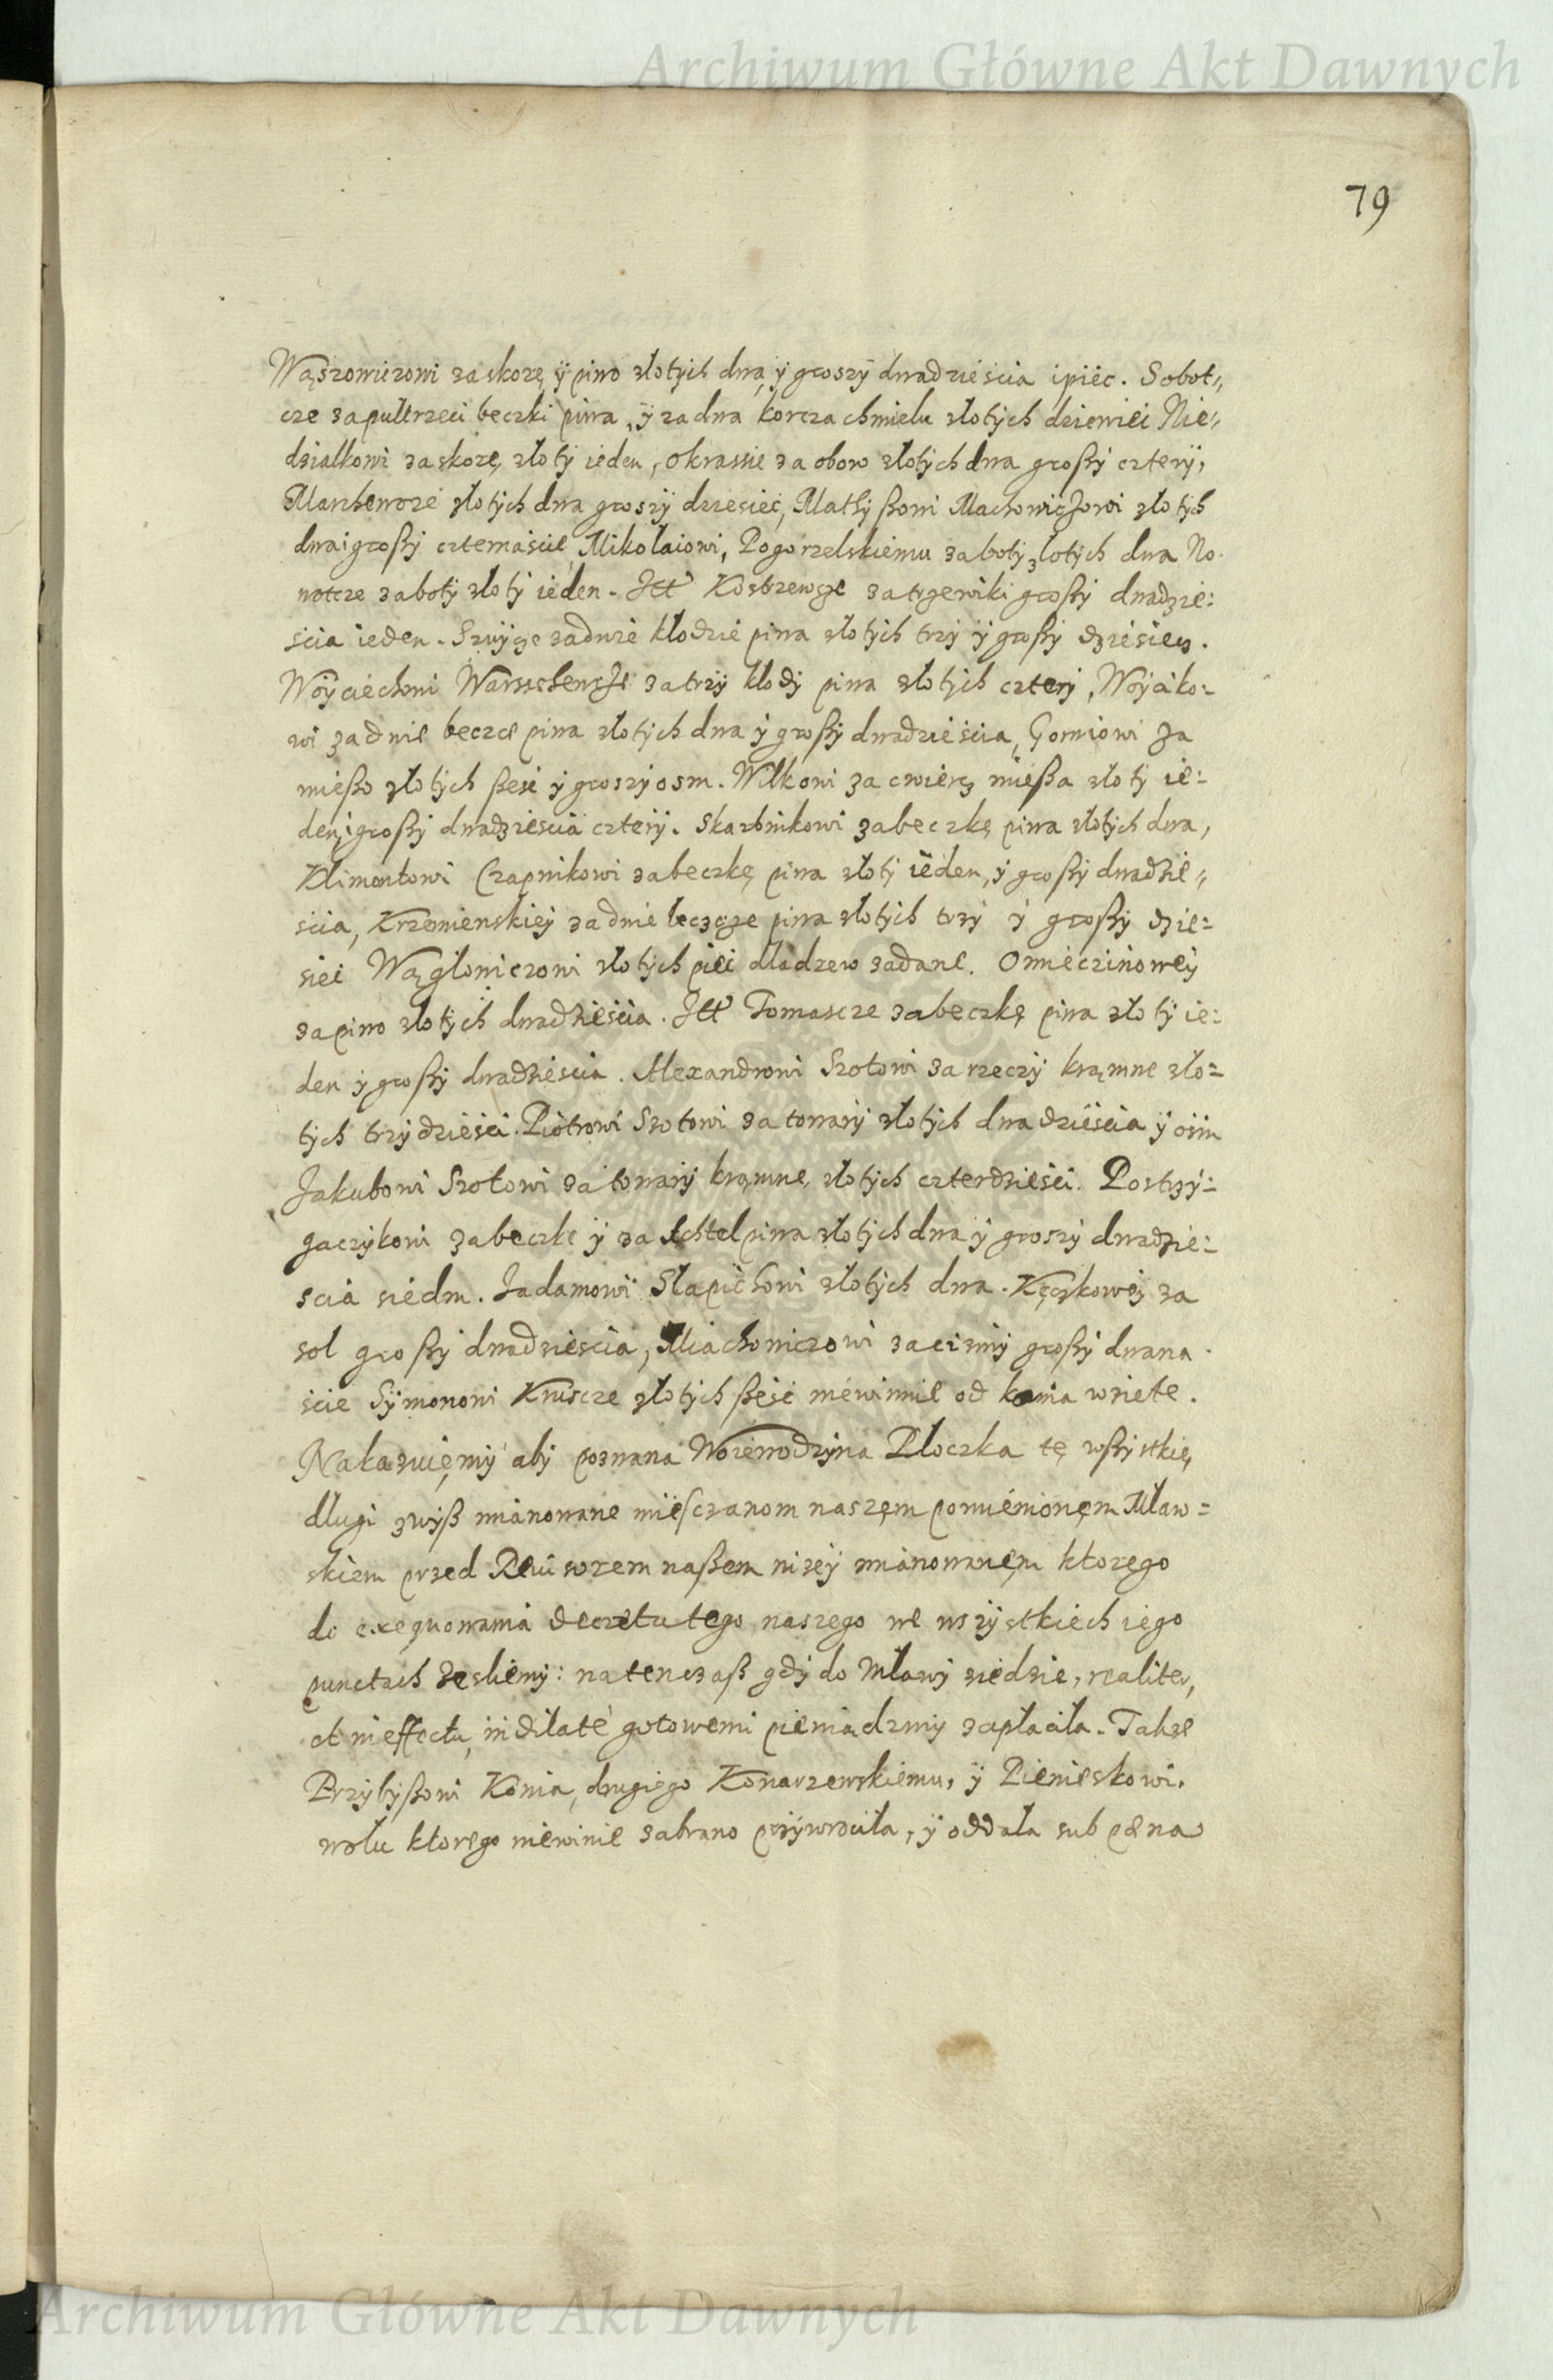 Archiwum Główne Akt Dawnych
79
Wąszowiczowi za skorę ÿ piwo złotych dwa ÿ groszÿ dwadziescia i piéc. Sobot„
cze za pułtrzeci beczki piwa, ÿ za dwa korcza chmielu złotych dziewiéc Nie„
dzialkowi za skorę złotÿ ieden, okrassie za obow złotych dwa großÿ czterÿ,
złotych dwa groszÿ dziesiec, Mathÿßowi Machowiczowi złotych
dwa i großÿ czternascie Mikolaiowi, Pogorzelskiemu za botÿ złotych dwa No
wotcze za botÿ złotÿ ieden. Itt Kostrzewcze za trzewiki großÿ dwadzie:
scia ieden. za dwie kłodzie piwa złotych trzÿ ÿ großÿ dziesiec.
Woÿciechowi za trzÿ kłodÿ piwa złotÿch czterÿ, Woÿciko=
wi za dwie beczce piwa złotych dwa ÿ großÿ dwadziescia, Gorniowi za
mießo złotych ßesc ÿ groszÿ osm. Wilkowi za cwierc mießa złotÿ ie:
den, i großÿ dwadziescia czterÿ. Skarbnikowi za beczkę piwa złotych dwa,
Klimontowi Czapnikowi za beczkę piwa złotÿ ieden, ÿ großÿ dwadzie„
scia, Krzemienskieÿ za dwie beczcze piwa złotych trzÿ ÿ großÿ dzie=
siec Wągłowiczowi złotych piéc dla drzew zadane. Omieczinoweÿ
za piwo złotÿch dwadziescia. Itt Tomascze za beczkę piwa złotÿ ie:
den ÿ großÿ dwadziescia. Alexandrowi Szotowi za rzeczÿ krąmne zło=
tÿch trzÿdziesci. Piotrowi Szotowi za towarÿ złotÿch dwadziescia ÿ osm
Jakubowi Szotowi za towarÿ krąmne, złotych czterdziesci. Postrzÿ=
gaczÿkowi za beczkę ÿ za achtel piwa złotych dwa ÿ groszÿ dwadzie=
scia siedm. Jadamowi Słapichowi złotych dwa. Kęczkoweÿ za
sol großÿ dwadziescia, Miachowiczowi za großÿ dwana
scie Sÿmonowi Kruscze złotych ßesc niewinnie od konia wziete.
Nakazuięmÿ abÿ pozwana Woiewodzÿna Płoczka tę wßÿstkię
długi zwÿß mianowane mieszczanom naszęm pomienionęm Mław=
skiem przed Rewisorem naßem niżeÿ mianowanęm ktorego
do exequowania decretu tego naszego we wszÿstkiech iego
punctach zeslemÿ: na ten czaß gdÿ do Mławÿ ziedzie, realiter,
et in effectu, indilaté gotowemi pieniądzmÿ zapłaciła. Takze
Przÿbÿßowi Konia, drugiego Konarzewskiemu, ÿ Pienieskowi.
wołu ktorego niewinie zabrano przÿwrociła, ÿ oddała sub pœna
Archiwum Główne Akt Dawnych